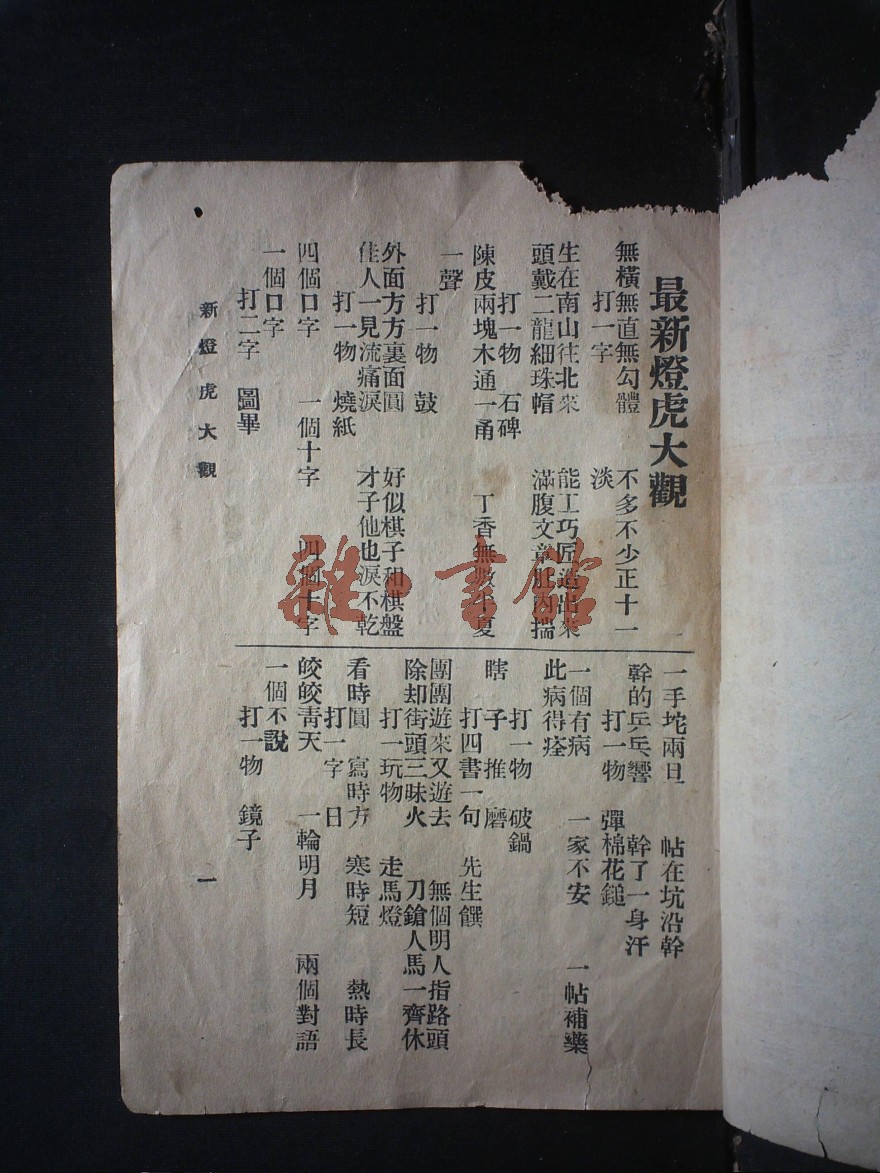 最新燈虎大觀
無橫無直無勾體　不多不少正十一
打一字　淡
生在南山往北來　能工巧匠造出來
頭戴二龍細珠帽　滿腹文章肚內揣
打一物　石碑
陳皮兩塊木通一甬　丁香無數半夏
一聲
打一物　鼓
外面方方裏面圓　好似棋子和棋盤
佳人一見流痛淚　才子他也淚不乾
打一物　燒紙
四個口字　一個十字　四個十字
一個口字
打二字　圖畢
一手垞兩旦　帖在坑沿幹
幹的乒乓響　幹了一身汗
打一物　彈棉花鎚
一個有病　一家不安　一帖補藥
此病得痊
打一物　破鍋
瞎子推磨
打四書一句　先生饌
團團遊來又遊去　無個明人指路頭
除却街頭三昧火　刀鎗人馬一齊休
打一玩物　走馬燈
看時圓　寫時方　寒時短　熱時長
打一字　日
皎皎青天　一輪明月　兩個對語
一個不說
打一物　鏡子
新燈虎大觀
一
雜·書館